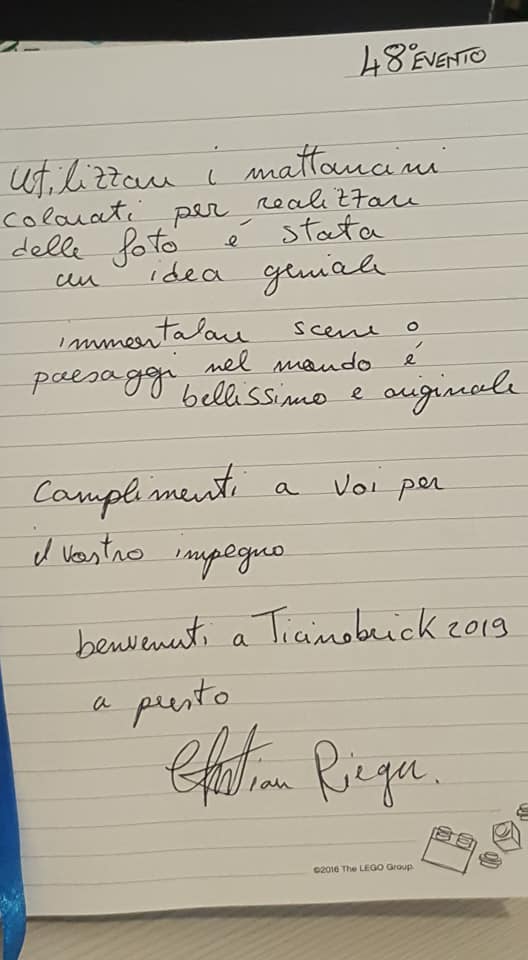 48° EVENTO
Utilizzare i mattoncini
colorati per realizzare
delle foto é stata
un idea geniale
immortalare scene o
paesaggi nel mondo é
bellissimo e originale
Complimenti a voi per
il vostro impegno
benvenuti a Ticinobrick 2019
a presto
©2016 The LEGO Group.